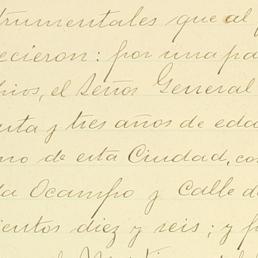 trumentales que al
ecieron: por una pa
rios, el Señor General
nta y tres años de eda
no de esta Ciudad, co
da Ocampo y Calle de
ientos diez y seis; y p